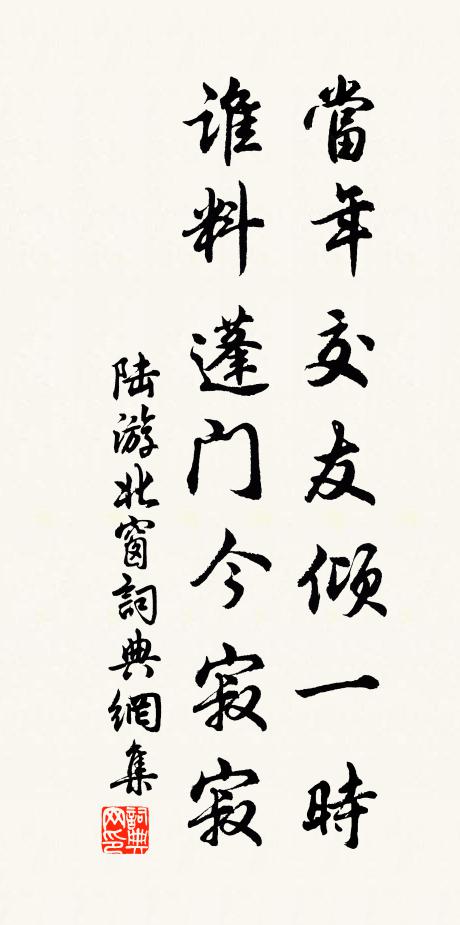 當年交友傾一時
誰料蓬门今寂寂
陆游北窗詞典網集
詞典网印